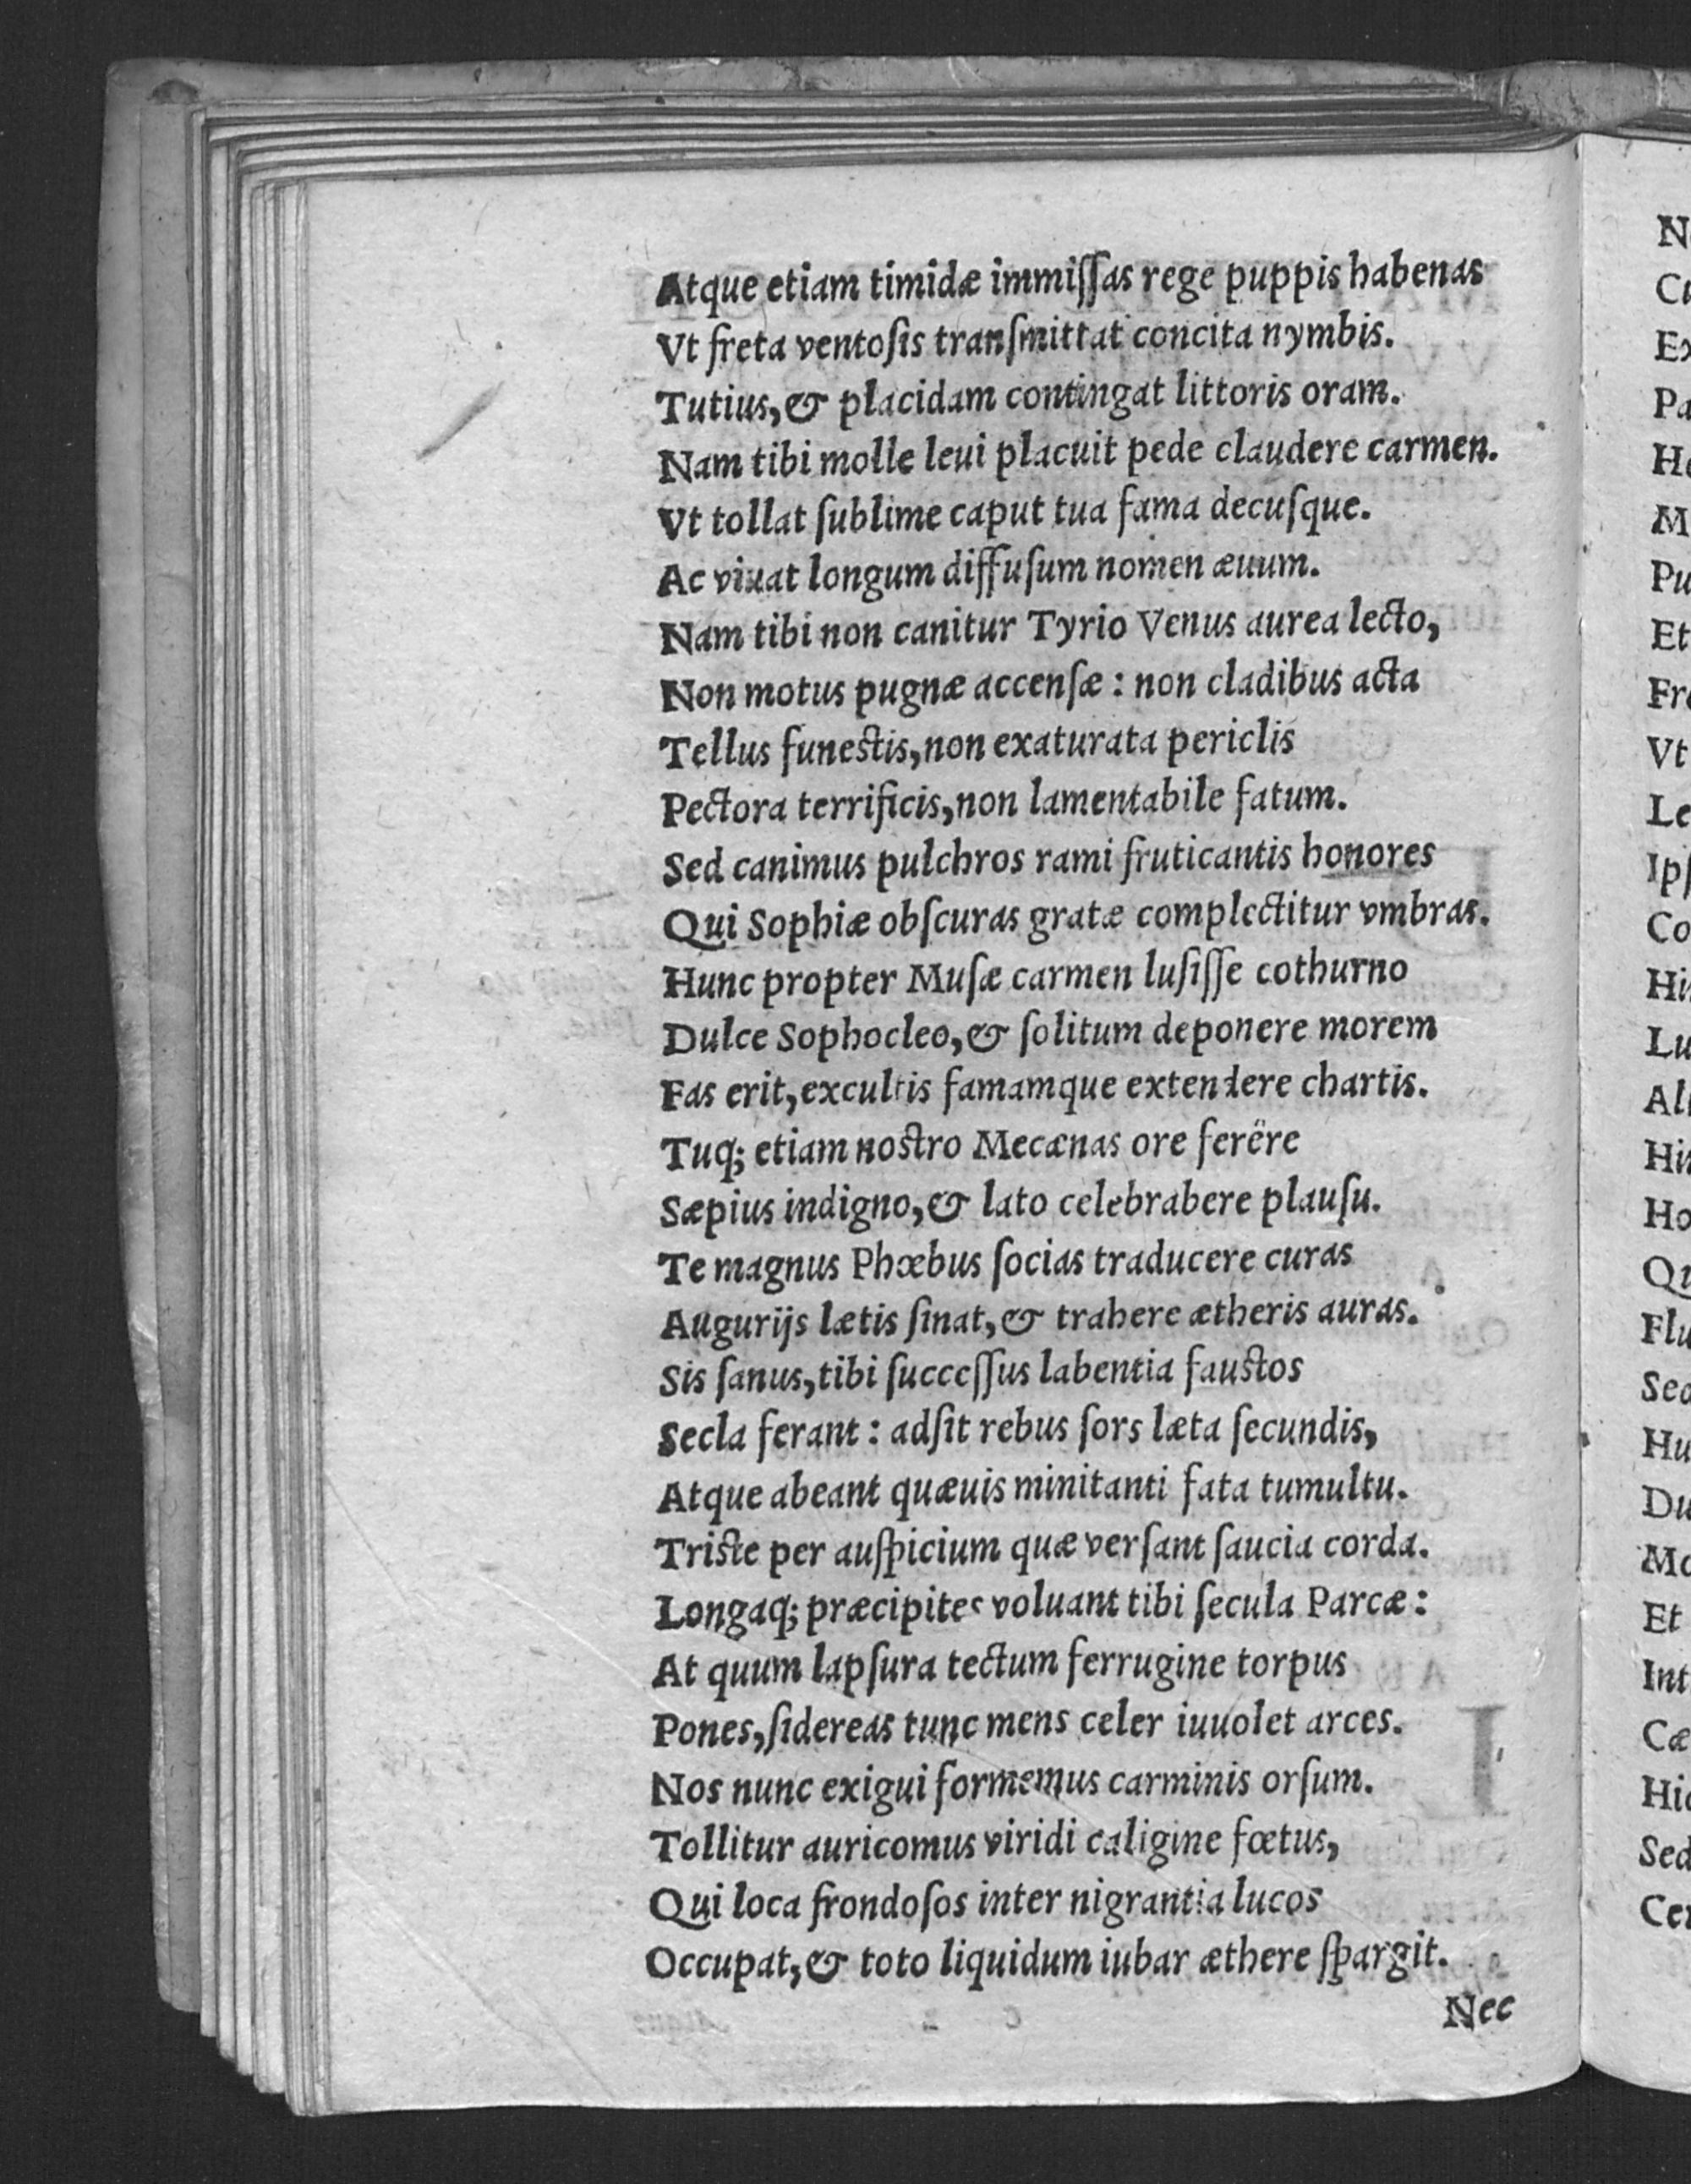 Atque etiam timidæ immiſſas rege puppis habenas
Vt freta ventoſis tranſmittat concita nymbis.
Tutius, & placidam contingat littoris oram.
Nam tibi molle leui placuit pede claudere carmen.
Vt tollat ſublime caput tua fama decuſque.
Ac viuat longum diffuſum nomen æuum.
Nam tibi non canitur Tyrio Venus aurea lecto,
Non motus pugnæ accenſæ: non cladibus acta
Tellus funestis, non exaturata periclis
Pectora terrificis, non lamentabile fatum.
Sed canimus pulchros rami fruticantis honores
Qui Sophiæ obſcuras gratæ complectitur vmbras.
Hunc propter Muſæ carmen luſiſſe cothurno
Dulce Sophocleo, & ſolitum deponere morem
Fas erit, excultis famamque extendere chartis.
Tuq; etiam nostro Mecænas ore ferëre
Sæpius indigno, & lato celebrabere plauſu.
Te magnus Phœbus ſocias traducere curas
Augurijs lætis ſinat, & trahere ætheris auras.
Sis ſanus, tibi ſucceſſus labentia faustos
Secla ferant: adſit rebus ſors læta ſecundis,
Atque abeant quæuis minitanti fata tumultu.
Triste per auſpicium quæ verſant ſaucia corda.
Longaq; præcipites voluant tibi ſecula Parcæ:
At quum lapſura tectum ferrugine torpus
Pones, ſidereas tunc mens celer iuuolet arces.
Nos nunc exigui formemus carminis orſum.
Tollitur auricomus viridi caligine fœtus,
Qui loca frondoſos inter nigrantia lucos
Occupat, & toto liquidum iubar æthere ſpargit.
Nec